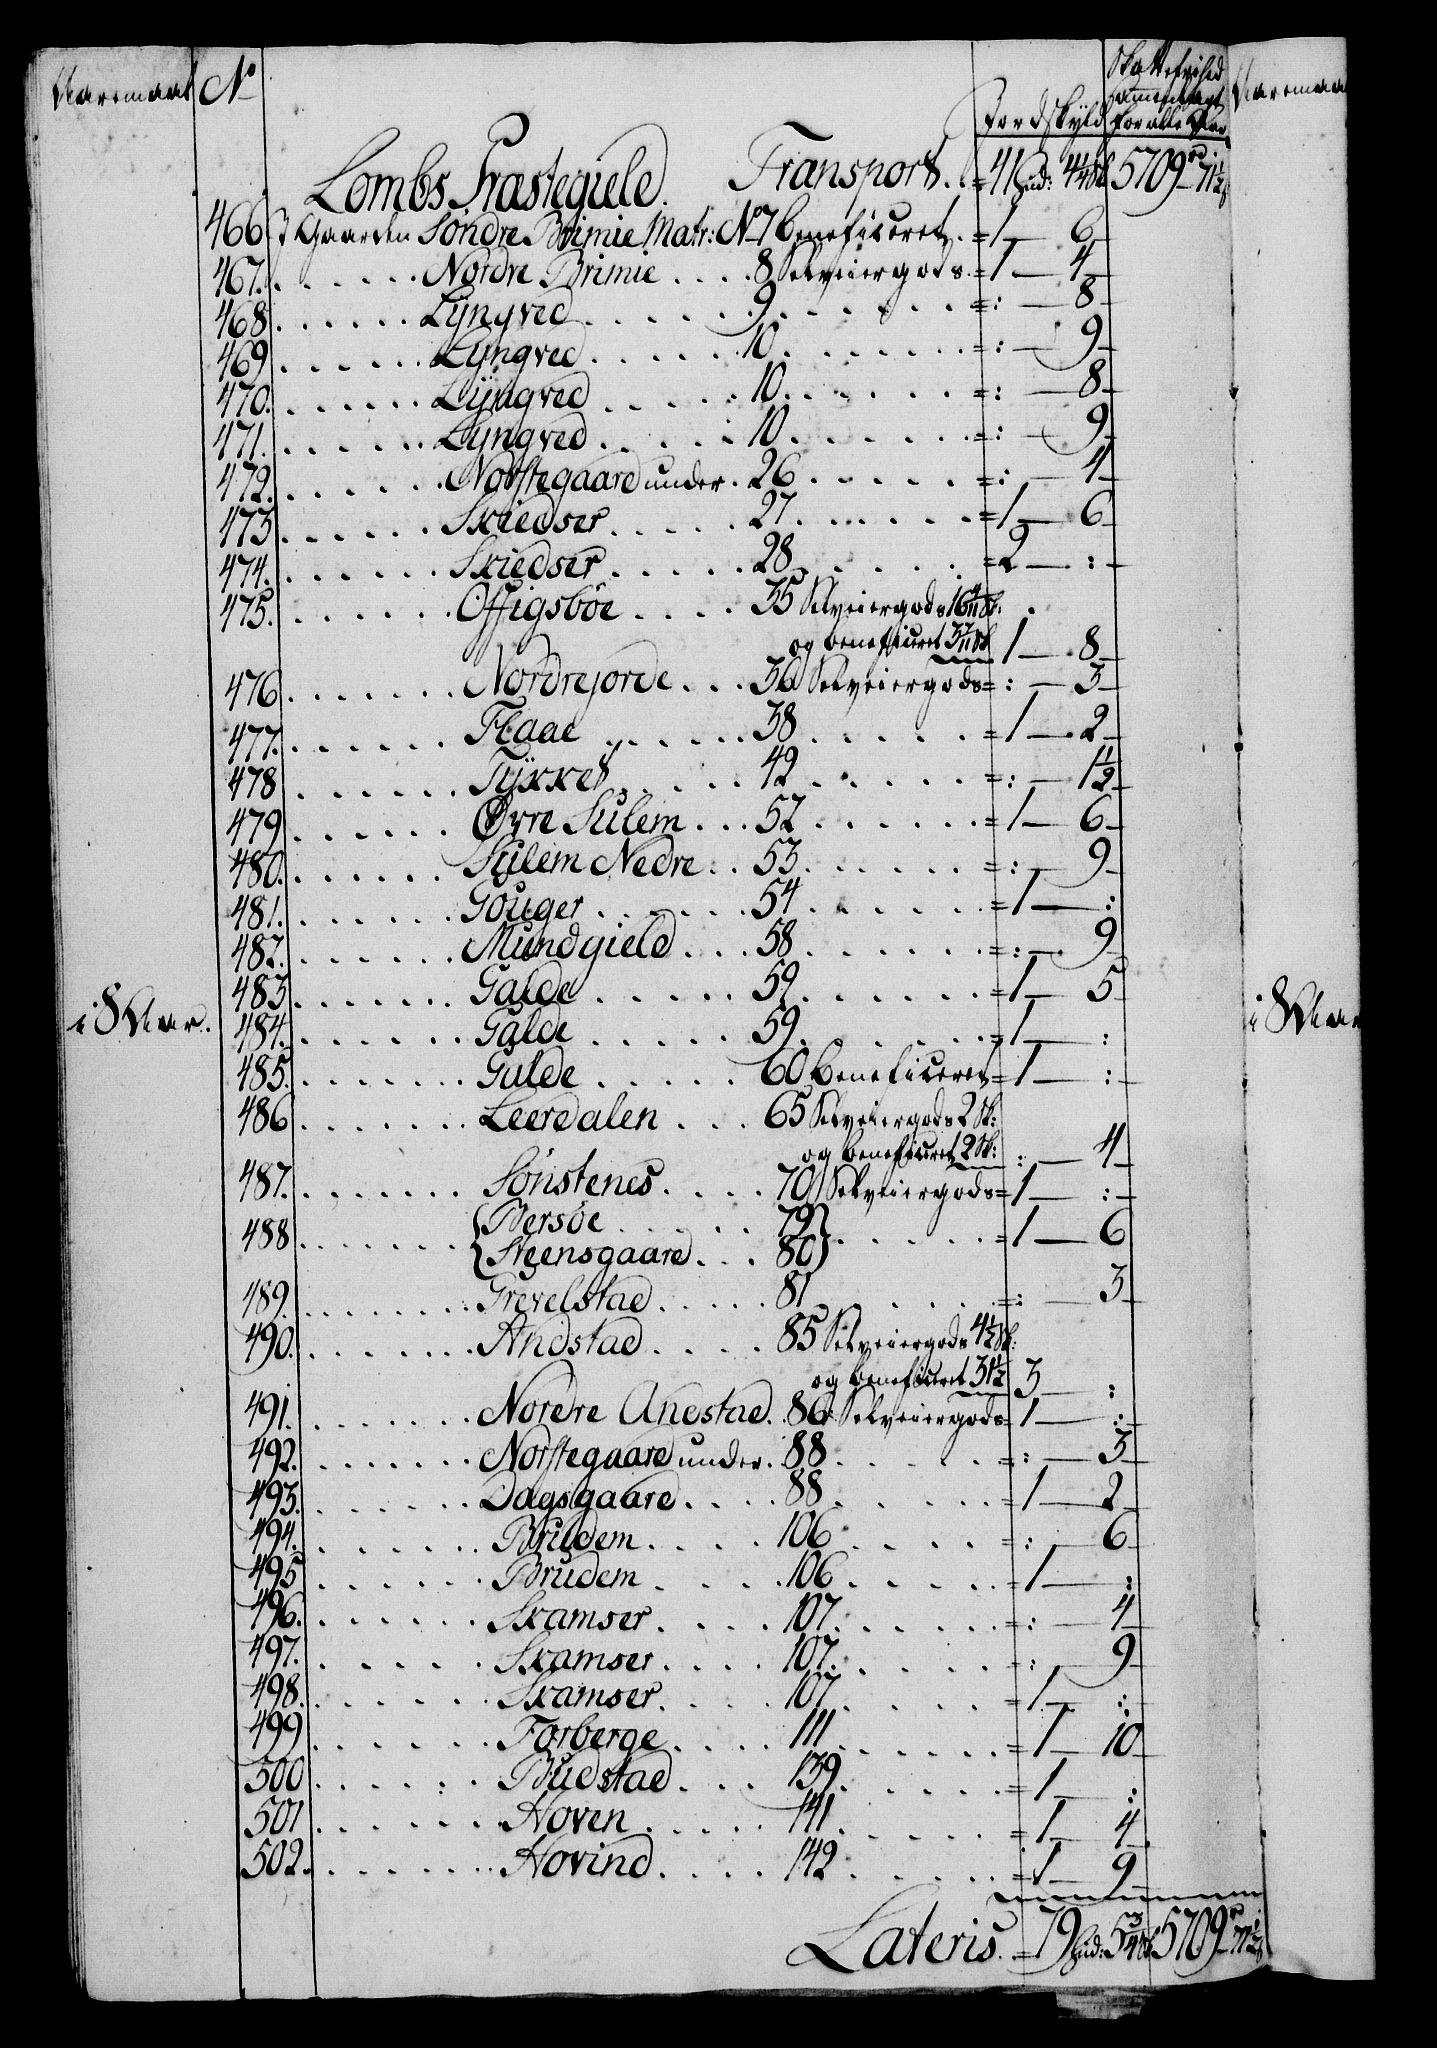 Aaremaal No Jordskyld Skattefrihed
sammenlagt
for alle Aar
Lombs Præstegield. Transport. = 41 Hud: 4 1/4 Sk 5709 rd 71 1/2 s
466 I Gaarden Søndre Brimie Matr: No 7 beneficeret. = 1 — 6 —
467. Nordre Brimie 8 Selveiergods. = 1 — 4 —
468 Lyngved 9 = : — 8 —
469 Lyngved 10 = : — 9 —
470. Lyngved 10 = : — 8 —
471. Lyngved 10 = : — 9 —
472. Norstegaard under 26 = : — 4 —
473 Skiedser 27 = 1 — 6 —
474. Skiedser 28 = 2 — : —
475. Offigsböe 35 Selveiergods 16 4/11 Sk:
og beneficeret 3 7/11 Sk 1 — 8 —
476 Nordrejorde 36 Selveiergods = : — 3 —
477. Flaae 38 = 1 — 2 —
478 Tykket 42 = : — 1 1/2 —
479 Øvre Sulem 52 = 1 — 6 —
480. Sulem Nedre 53 = : — 9 —
481. Gouger 54 = 1 — :
482. Mundgield 58 = : — 9 —
483 Galde 59 = 1 — 5 —
i 8 Aar. 484. Galde 59 = 1 — :
485. Galde 60 beneficeret = 1 — : —
486 Leeredalen 65 Selveiergods 2 Sk:
og beneficeret 2 Sk: : — 4 —
487. Sønstenes 70 Selveiergods = 1 — : —
488 { Bersöe 79 } = 1 — 6
{ Steensgaard 80 }
489. Grevelstad 81 = : — 3 —
490. Andstad 85 Selveiergods 4 1/2 Sk:
og beneficeret 31 1/2 3 — :
491. Nordre Andstad. 86 Selveiergods = 1 — : —
492. Norstegaard under 88 = : — 3 —
493. Dagsgaard 88 = 1 — 2 —
494. Brudem 106 = : — 6 —
495 Brudem 106 = 1 — :
496. Skamser 107 = : — 4 —
497. Skamser 107 = : — 9 —
498. Skamser 107 = 1 — : —
499 Forberge 111 = 1 — 10 —
500 Budstad 139 = 1 — :
501 Hoven 141 = 1 — 4
502. Hovind 142 = 1 — 9 —
Lateris. = 79 Hud: 5 3/4 Sk 5709 rd 71 1/2 s
Aaremaal
i 8 Aar